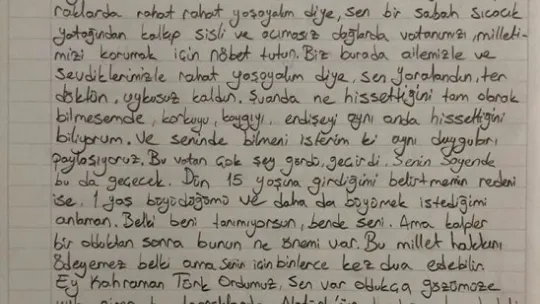 raklarda rahat rahat yaşayalım diye, sen bir sabah sıcacık
yatağından kalkıp sisli ve acımasız dağlarda vatanımızı, milleti-
mizi korumak için nöbet tutun. Biz burada ailemizle ve
sevdiklerimizle rahat yaşayalım diye, sen yaralandın, ter
döktün, uykusuz kaldın. Şuanda ne hissettiğini tam olarak
bilmesemde, korkuyu, kaygıyı, endişeyi aynı anda hissettiğini
biliyorum. Ve seninde bilmeni isterim ki aynı duyguları
paylaşıyoruz. Bu vatan çok şey gördü, geçirdi. Senin Sayende
bu da geçecek. Dün 15 yaşına girdiğimi belirtmemin nedeni
ise, 1 yaş büyüdüğümü ve daha da büyümek istediğimi
anlaman. Belki beni tanımıyorsun, bende seni. Ama kalpler
bir olduktan sonra bunun ne önemi var. Bu millet hakkını
ödeyemez belki ama senin için binlerce kez dua edebilir.
Ey Kahraman Türk Ordumuz, sen var oldukça gözümüze